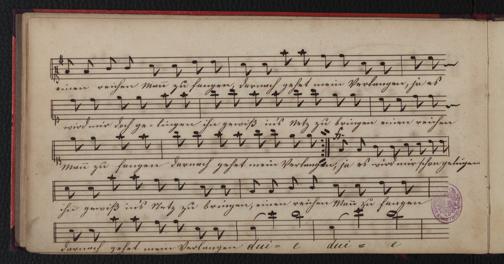 einen reichen Mañ zu fangen, darnach gehet mein Verlangen, ja es
wird mir doch ge = lingen ihn gewiß ins Netz zu bringen einen reichen
Mañ zu fangen darnach gehet mein Verlangen, ja es wird mir schon gelingen
ihn gewiß ins Netz zu bringen, einen reichen Mañ zu fangen
darnach gehet mein Verlangen dui = e dui = e